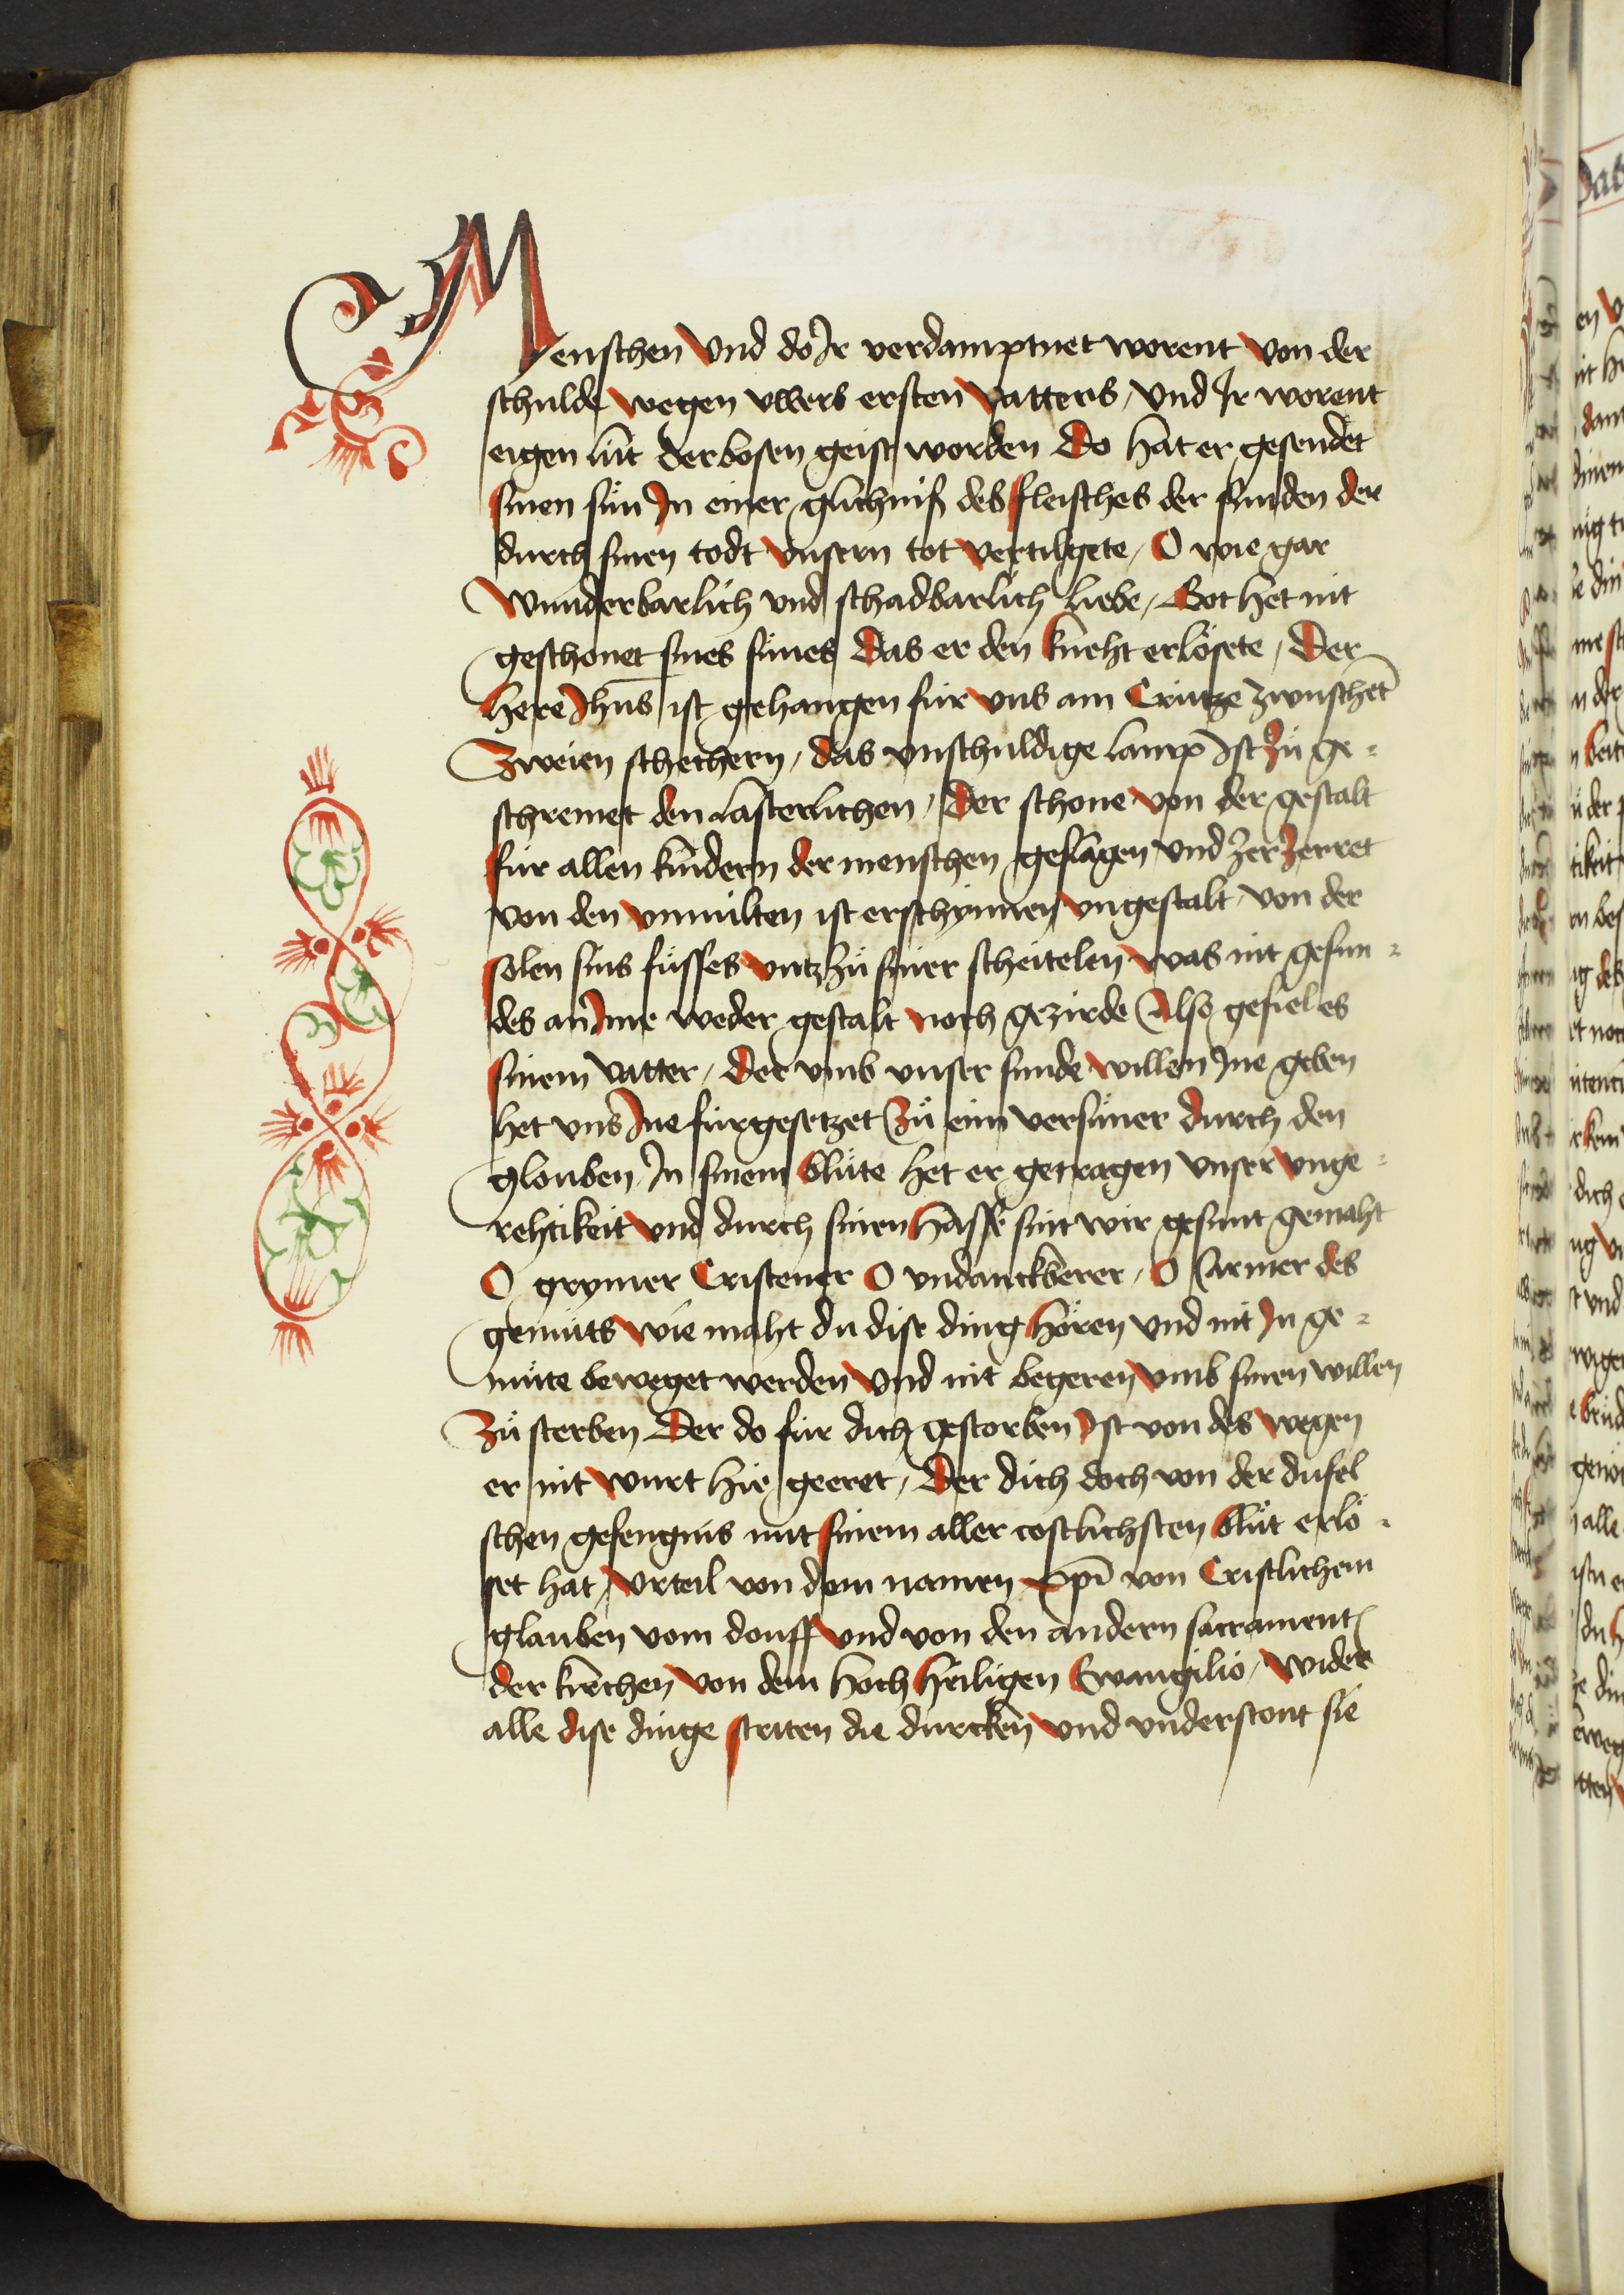 Menschen Vnd do Jr verdamptnet worent von der
schulde wegen vwers ersten vatters, vnd Jr worent
eigen lüt der bosen geist worden Do hat er gesendet
sinen sün Jn einer glichniß des fleisches der sunden der
durch sinen todt vnsern tot vertilgete, O wie gar
wunderbarlich vnd schadbarlich liebe, Got het nit
geschonet sines sünes Das er den kneht erlösete, Der
here Jhus ist gehangen für vns am Crütze zwuschet
Zweien schechern, das vnschuldige lamp Jst Zů ge=
schremet den lasterlichen, Der schone von der gestalt
für allen kindern der menschen geslagen vnd ZerZerret
von den vnmilten ist erschynnen vngestalt von der
solen sins füsses vntz zů siner scheitelen was nit gesun=
des an Jme weder gestalt noch gezirde Also gefiel es
sinem vatter, Der vmb vnser sunde willen Jne geben
het vns Jne fürgesetzet Zů eim versüner durch den
glouben Jn sinem blůte het er getragen vnser vnge=
rehtikeit vnd durch sinen hasse sint wir gesunt gemaht
O grymer Cristener O vndanckberer, O Armer des
gemüts wie maht du dise ding hören vnd nit Jn ge=
müte beweget werden Vnd nit begeren vmb sinen willen
Zů sterben Der do für dich gestorben Jst von des wegen
er nit wurt hie geeret, Der dich doch von der dufel
schen gefengnis mit sinem aller costlichsten blůt erlö=
set hat, Vrteil von dem namen xpi von Cristlichem
glauben vom douff vnd von den andern sacrament
der kirchen von dem hoch heiligen Ewangilio, wider
alle dise dinge striten die durcken vnd vnderstont sie